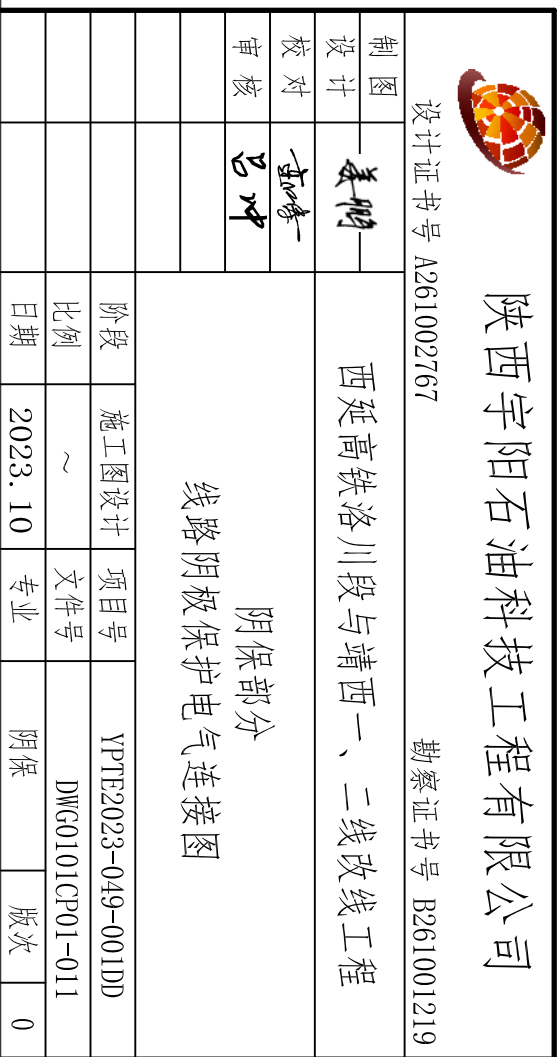 陕西宇阳石油科技工程有限公司
设计证书号 A261002767 勘察证书号 B261001219
制图
设计
校对
审核
西延高铁洛川段与靖西一、二线改线工程
阴保部分
线路阴极保护电气连接图
阶段 施工图设计 项目号 YPTE2023-049-001DD
比例 ~ 文件号 DWG0101CP01-011
日期 2023.10 专业 阴保 版次 0